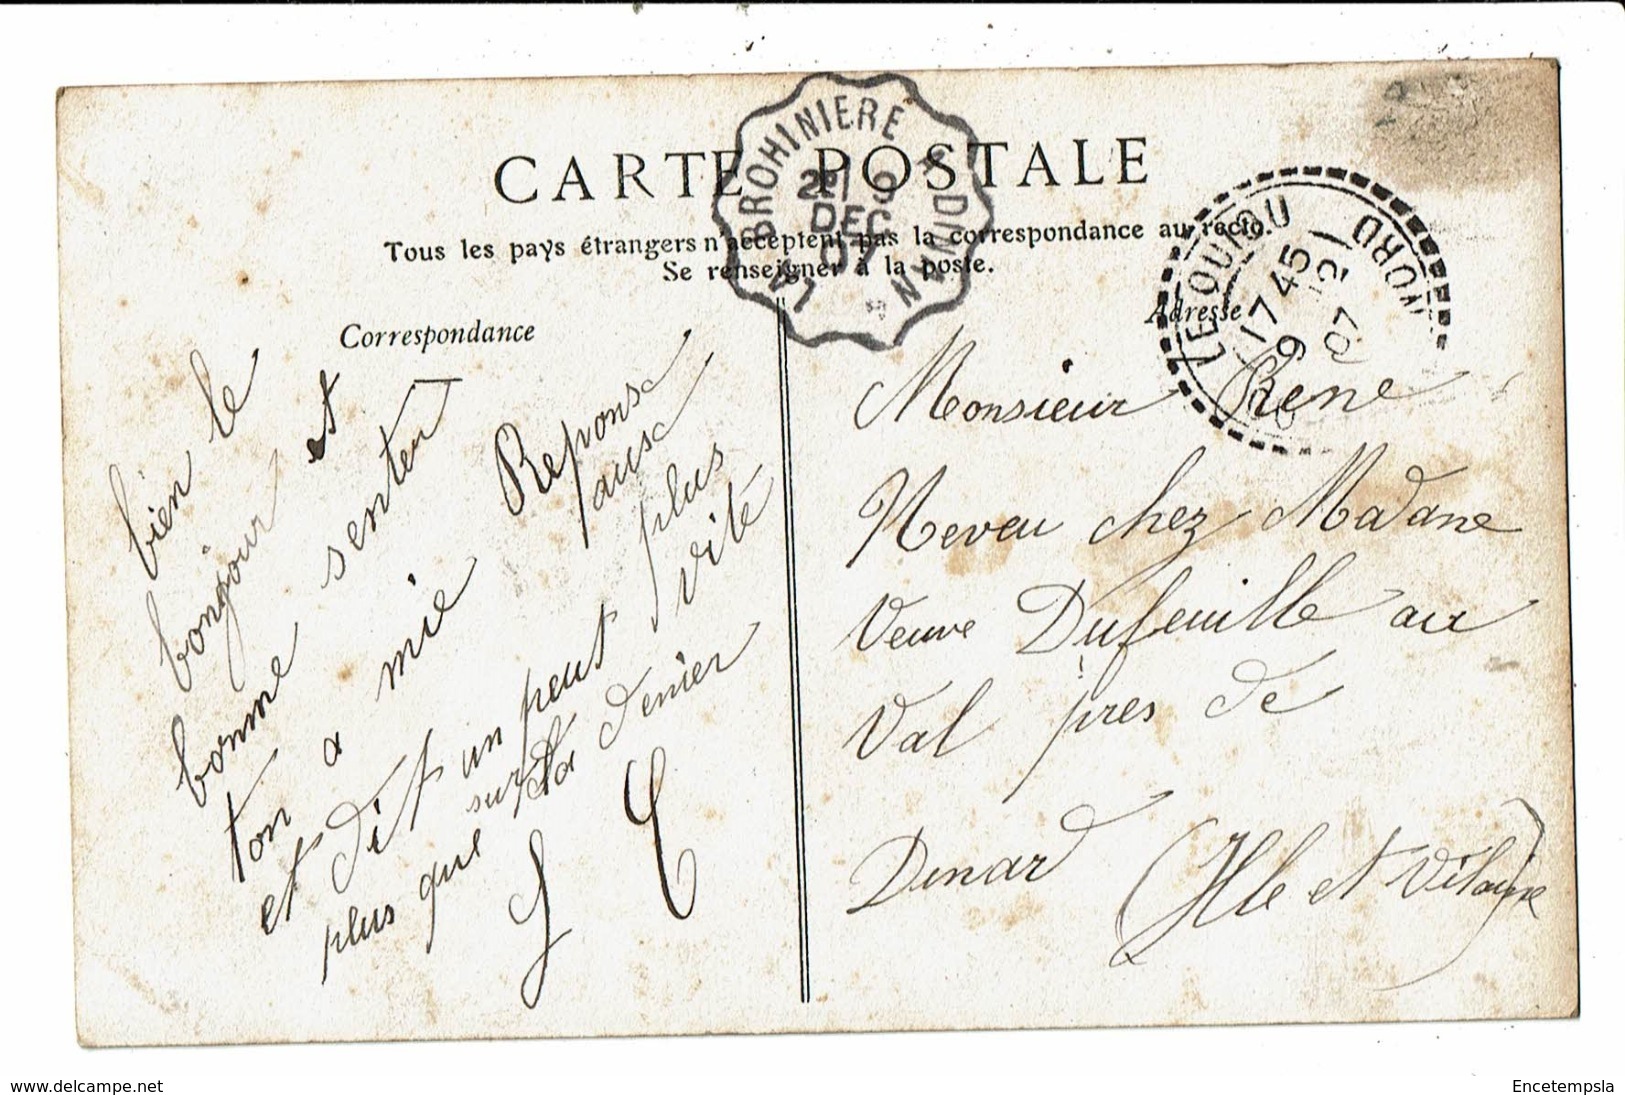 CARTE POSTALE
Tous les pays étrangers n'acceptent pas la correspondance au recto.
Se renseigner à la poste.
Correspondance
Adresse
LA BROHINIERE A DINAN
2E 9
DEC
07
LE QUIOU
17 45
9 12
07
NORD
bien le
bonjour et
bonne senter
ton a mie Reponse
et dit un peut plus vite
plus que sur la denier
Monsieur Rene
Neveu chez Madane
Veuve Dufeuille au
Val pres de
Dinard (Ille et Vilaine)
www.delcampe.net
Encetempsla